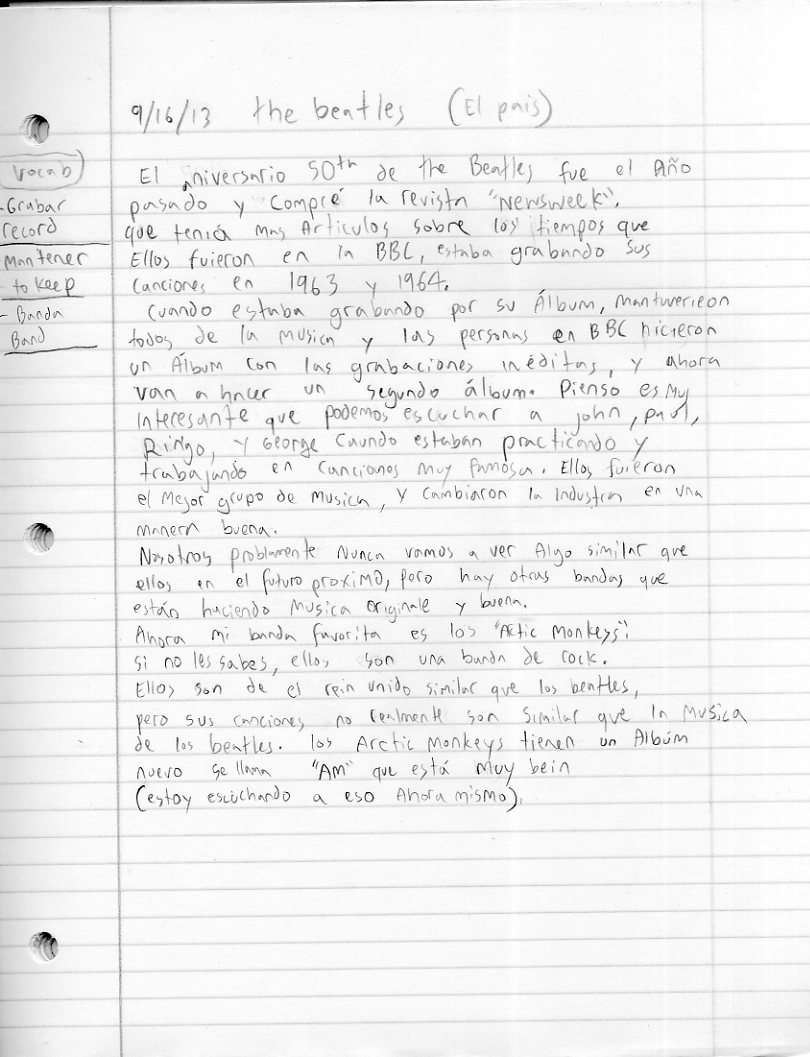 9/16/13 the beatles (El pais)
vocab
- Grabar
record
Mantener
- to keep
- Banda
Band
El aniversario 50th de the Beatles fue el Año
pasado y compré la revista "Newsweek".
que teniá mas Articulos sobre los tiempos que
Ellos fuieron en la BBC, estaba grabando sus
canciones en 1963 y 1964.
Cuando estaba grabando por su Álbum, mantuverieon
todos de la musica y las personas en BBC hicieron
un Álbum con las grabaciones inéditas, y ahora
van a hacer un segundo álbum. Pienso es My
interesante que podemos escuchar a john, paul,
Ringo, y George Caundo estaban practicando y
trabajando en canciones muy famosa. Ellos fuieron
el Mejor grupo de Musica, y cambiaron la industria en una
manera buena.
Nosotros problamente Nunca vamos a ver Algo similar que
ellos en el futuro proximo, pero hay otras bandas que
están haciendo Musica originale y buena.
Ahora mi banda favorita es los "Actic Monkeys".
si no les sabes, ellos son una banda de rock.
Ellos son de el rein unido similar que los beatles,
pero sus canciones no realmente son similar que la Musica
de los beatles. los Arctic Monkeys tienen un Albúm
nuevo se llama "AM" que está muy bein
(estoy escuchando a eso Ahora mismo).